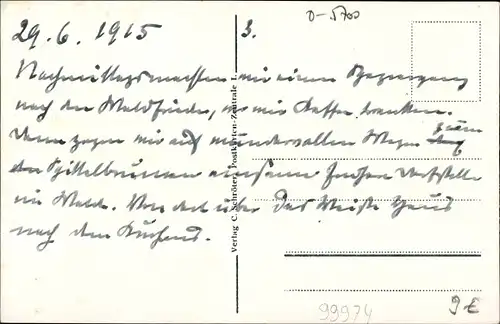 29.6.1915
3.
0-5700
Nachmittags machten wir einen Spaziergang
nach der Waldfrieden, wo wir Kaffee tranken.
Dann zogen wir auf wundervollen Wegen zum
einem
im Walde. Von dort über das Weiße Haus
nach dem Kurhaus.
Verlag C. Schröter, Postkarten-Zentrale I.
99974
9€